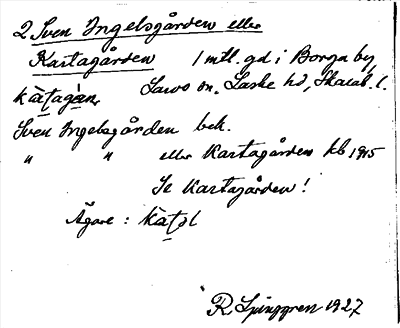 2 Sven Ingelsgården eller
Kartagården 1 mtl. gd i Borga by,
kàt̯agàn. Sarvs sn. Laske hd, Skarab. l.
Sven Ingelsgården bek.
" " eller Kartagården kb 1915
Se Kartagården!
Ägare: kàt̯əl
R Ljunggren 1927